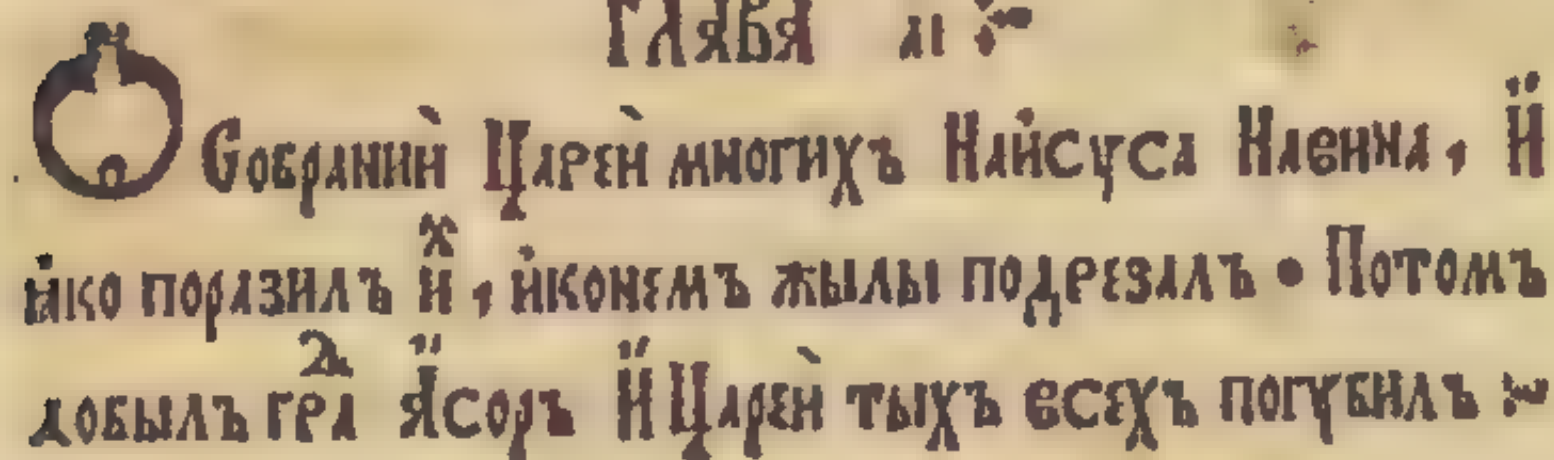 ГЛАВА АІ
О Собраниѝ Царей многихъ Наисуса Наенна, Й
ико поразилъ иⷯ, иконемъ жылы подрезалъ • Потомъ
добылъ граⷣ Асоръ Й Царей тыхъ всехъ погубилъ